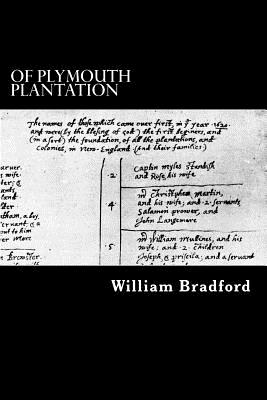 OF PLYMOUTH
PLANTATION
The names of those which came over first, in yᵉ year 1620
and were (by the blesing of god) the first beginers, and
(in a sort) the foundation, of all the plantations, and
colonies, in New-England (And their families)
arver.
s wife
ter; &
ants,
land
lder
tham, a boy,
ervant; &
put to him
er More
Brewster
2
Captin myles Standish
and Rose, his wife
4
mʳ Christpher martin,
and his wife; and 2 servants,
Salamon prower, and
John Langemore
5
mʳ William mullines, and his
wife; and 2 children
Joseph, & priscila; and a servant
William Bradford